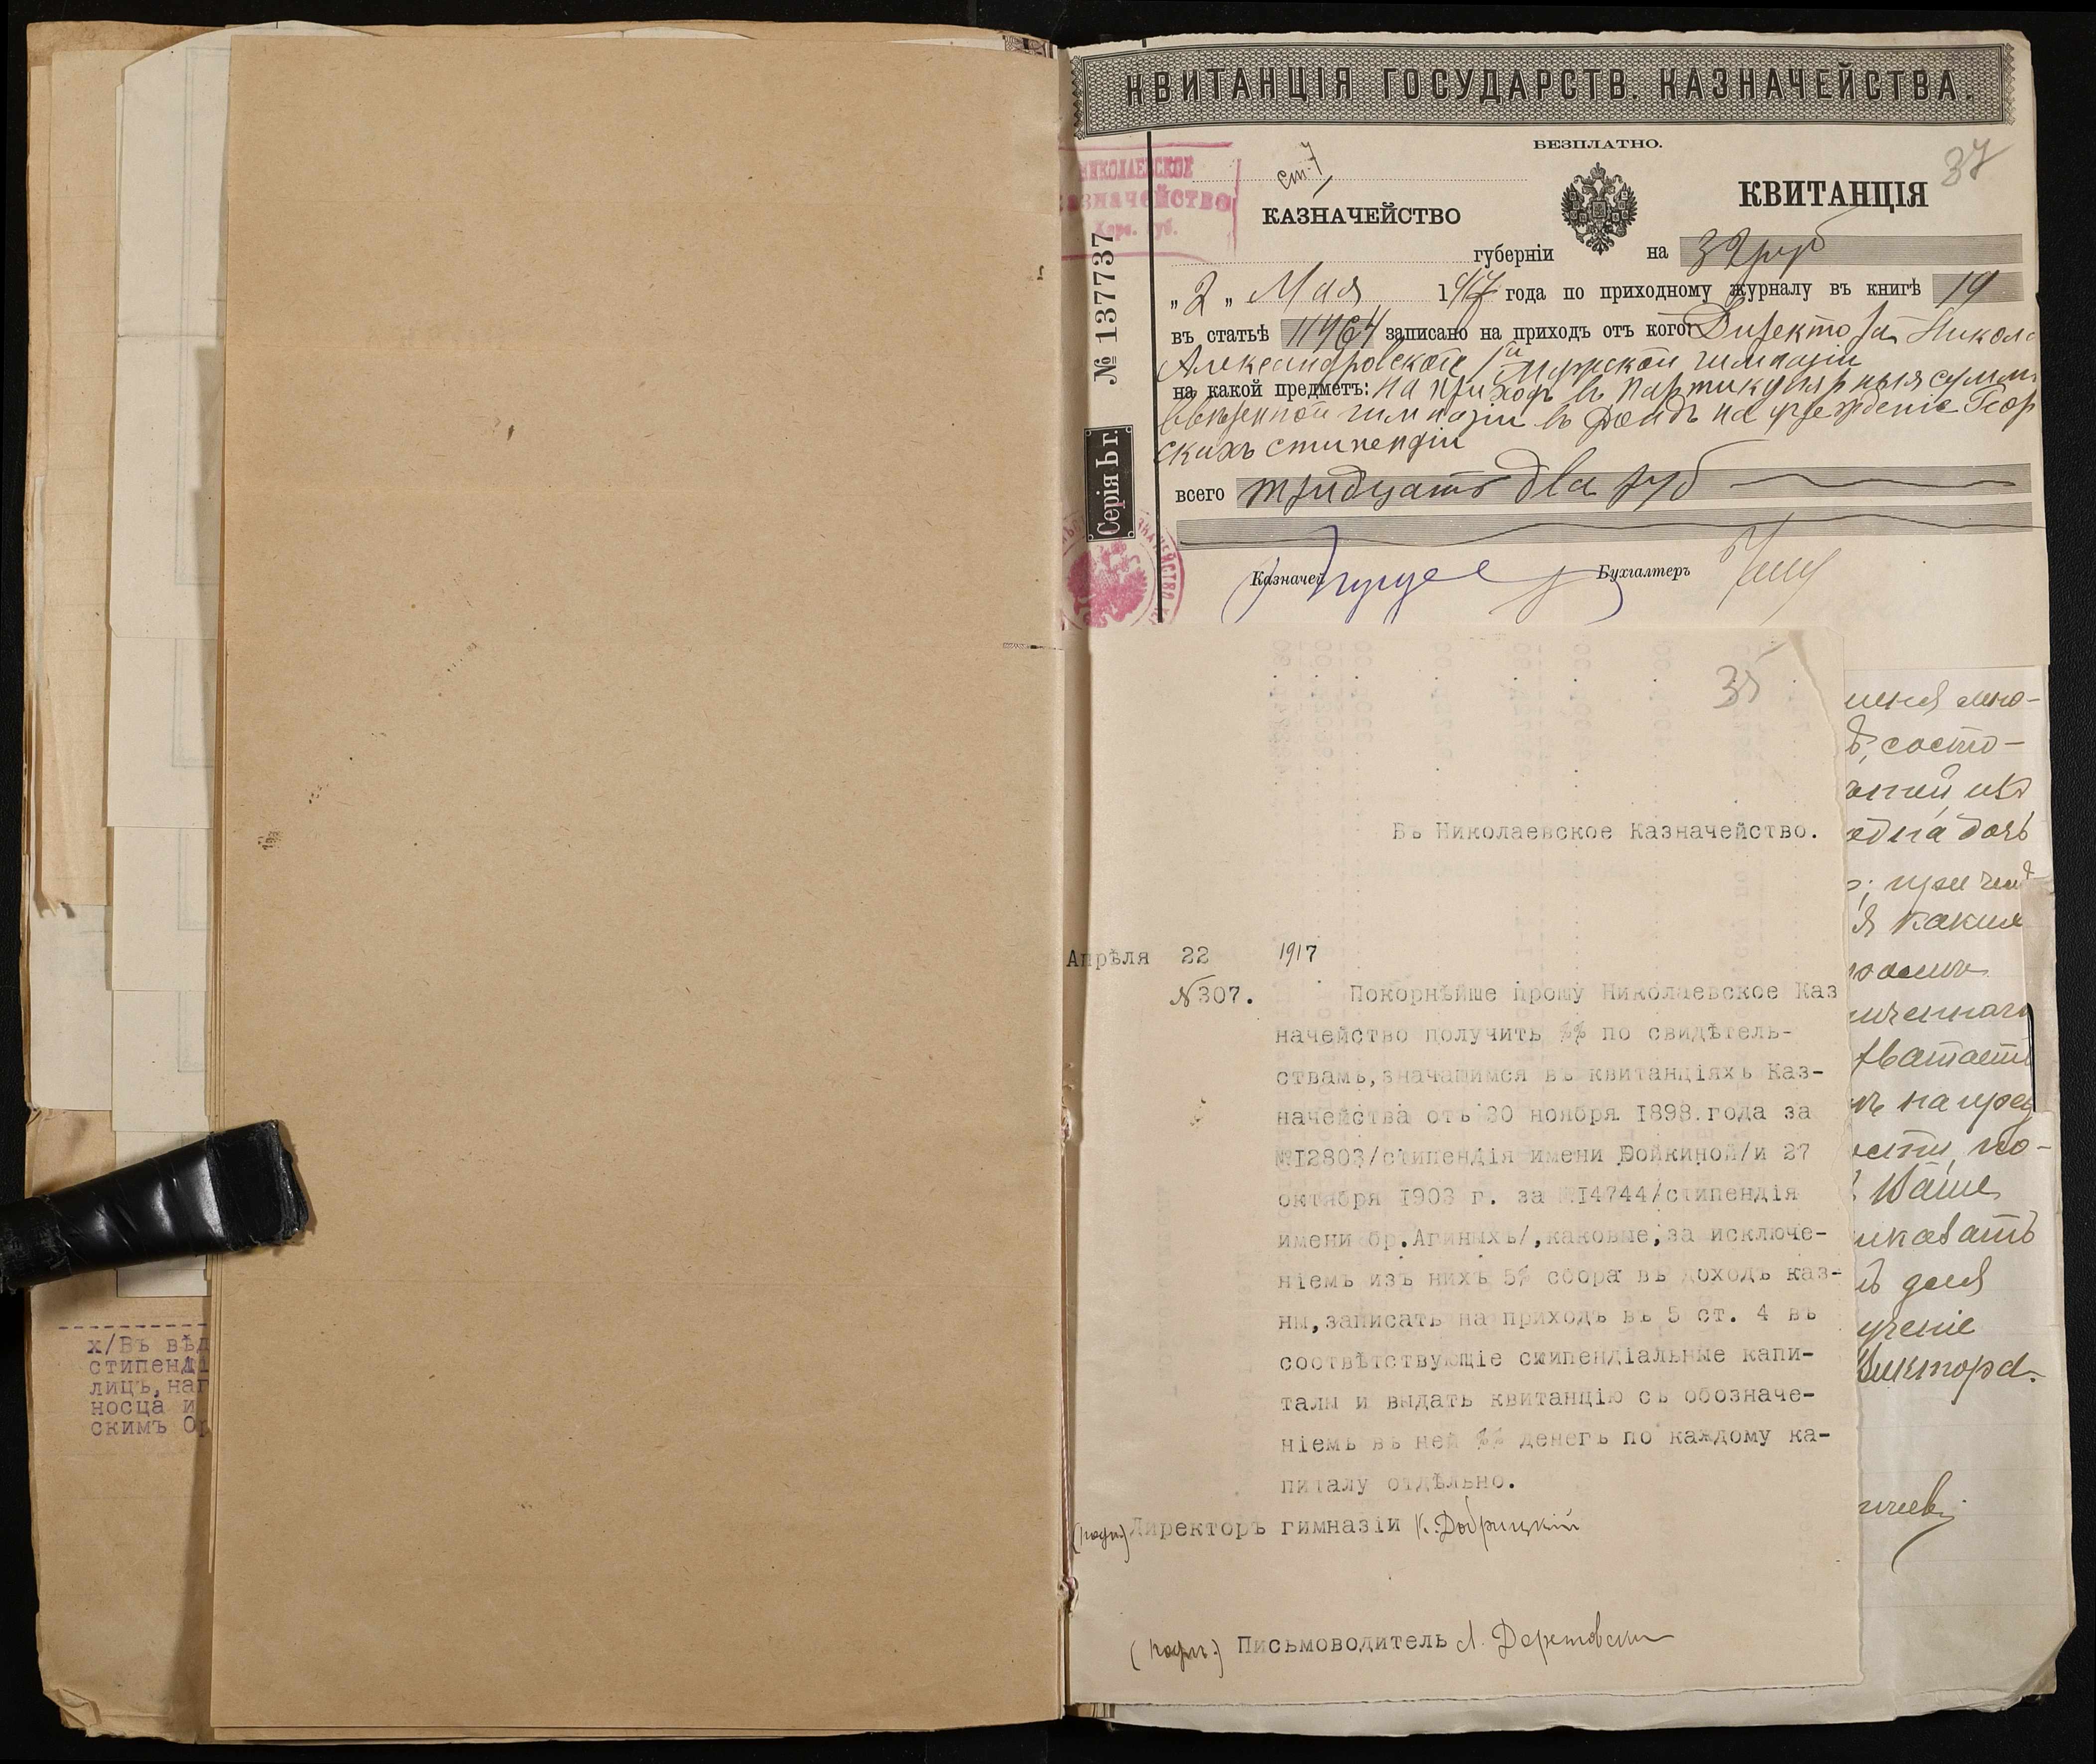 х/Въ вѣд
стипенді
лицъ, наг
носца и
скимъ Ор
КВИТАНЦІЯ ГОСУДАРСТВ. КАЗНАЧЕЙСТВА.
БЕЗПЛАТНО.
37
НИКОЛАЕВСКОЕ
КАЗНАЧЕЙСТВО
ст. 7
КАЗНАЧЕЙСТВО
КВИТАНЦІЯ
губерніи
на 32 руб
№ 137737
Серія Ѣ г.
„ 2 „ Мая 1917 года по приходному журналу въ книгѣ 19
въ статьѣ 11464 записано на приходъ отъ кого: Директора Никола
Александровской 1й мужской гимназіи
на какой предметъ: на приходъ въ партикулярныя суммы
ввѣренной гимназіи въ фондъ на учрежденіе Геор
скихъ стипендій
всего тридцать два руб
Казначей
Бухгалтеръ
35
Въ Николаевское Казначейство.
Апрѣля 22 1917
№307.
Покорнѣйше прошу Николаевское Каз
начейство получить %% по свидѣтель-
ствамъ, значащимся въ квитанціяхъ Каз-
начейства отъ 30 ноября 1898.года за
№12803/стипендія имени Бойкиной/и 27
октября 1903 г. за №14744/стипендія
имени бр.Агиныхъ/,каковые,за исключе-
ніемъ изъ нихъ 5% сбора въ доходъ каз-
ны,записать на приходъ въ 5 ст. 4 въ
соотвѣтствующіе стипендіальные капи-
талы и выдать квитанцію съ обозначе-
ніемъ въ ней %% денегъ по каждому ка-
питалу отдѣльно.
(подп.) Директоръ гимназіи К. Добрицкій
(подп.) Письмоводитель
мено-
состо-
одна дочь
какия
на пред
по-
Ваше
для
ученіе
Виктора.